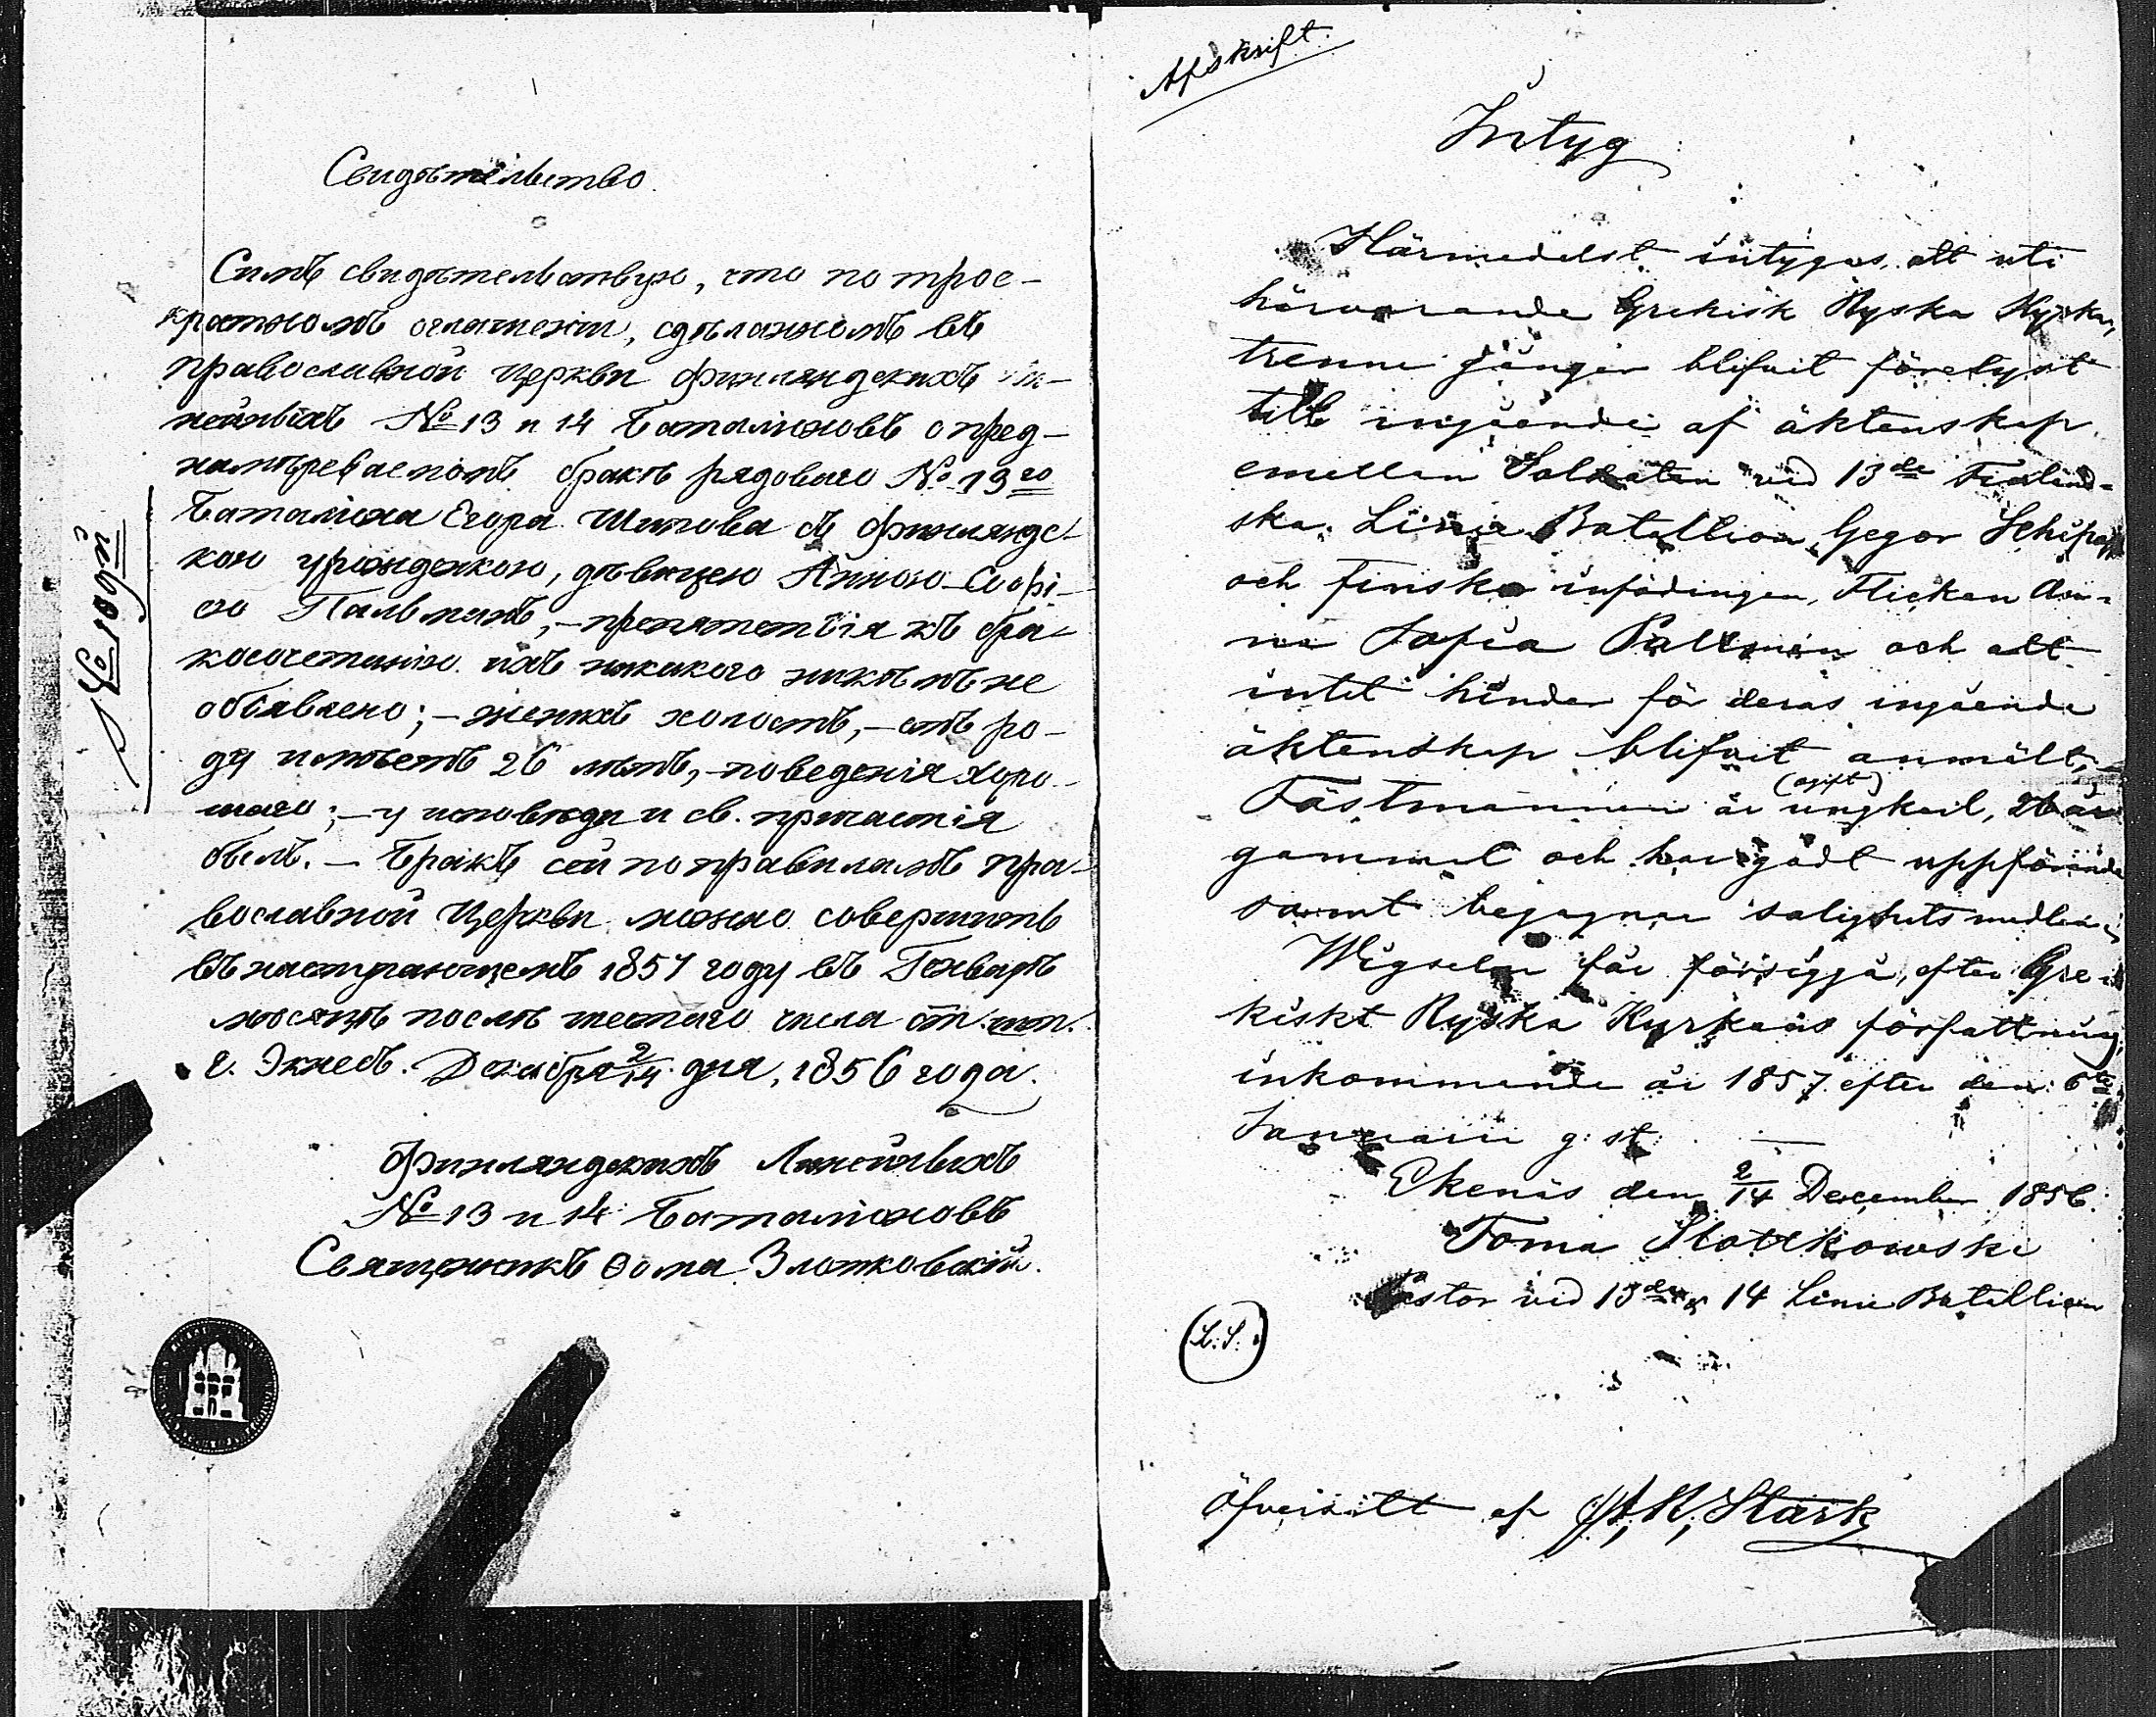 Свидѣтельство.
Симъ свидѣтельствую, что по трое-
кратномъ оглашеніи, сдѣланномъ въ
православной Церкви Финляндскихъ Ли-
нейныхъ № 13 и 14 Баталіоновъ о пред-
намѣреваемомъ бракѣ рядоваго № 13го
Баталіона Егора Шипова съ Финляндс-
кою урожденкою, дѣвицею Анною-Софі-
ею Пальманъ, - препятствія къ бра-
косочетанію ихъ никакого никѣмъ не
объявлено; - женихъ холостъ, - отъ ро-
ду имѣетъ 26 лѣтъ, - поведенія хоро-
шаго; - у исповѣди и св. причастія
былъ. - Бракъ сей по правиламъ пра-
вославной Церкви можно совершить
въ наступающемъ 1857 году въ Генварѣ
мѣсяцѣ послѣ шестаго числа ст. шт.
г. Экнесъ. Декабря 2/14 дня, 1856 года.
Финляндскихъ Линейныхъ
№ 13 и 14 Баталіоновъ
Священникъ Ѳома Злотковскій.
Afskrift.
Intyg
Härmedelst intygas, att uti
härvarande Grekisk Ryska Kyrka,
trenne gånger blifvit förelyst
till ingående af äktenskap
emellan Soldaten vid 13de Finländ-
ska Linie Batallion, Gegor Schipoff
och finska infödingen, Flickan An-
na Sofia Pallman och att
intet hinder för deras ingående
äktenskap blifvit anmält,
Fästmannen är (ogift) ungkarl, 26 år
gammal och har godt uppförande
samt begagnar salighetsmedlen;
Wigseln får försiggå, efter Gre-
kiskt Ryska Kyrkans författning,
inkommande år 1857 efter den 6te
Januarii g: st:
Ekenäs den 2/14 December 1856.
Toma Slottkowski
Pastor vid 13de & 14 Linie Batallion
(L.S.)
Öfversatt af A, R, Stark